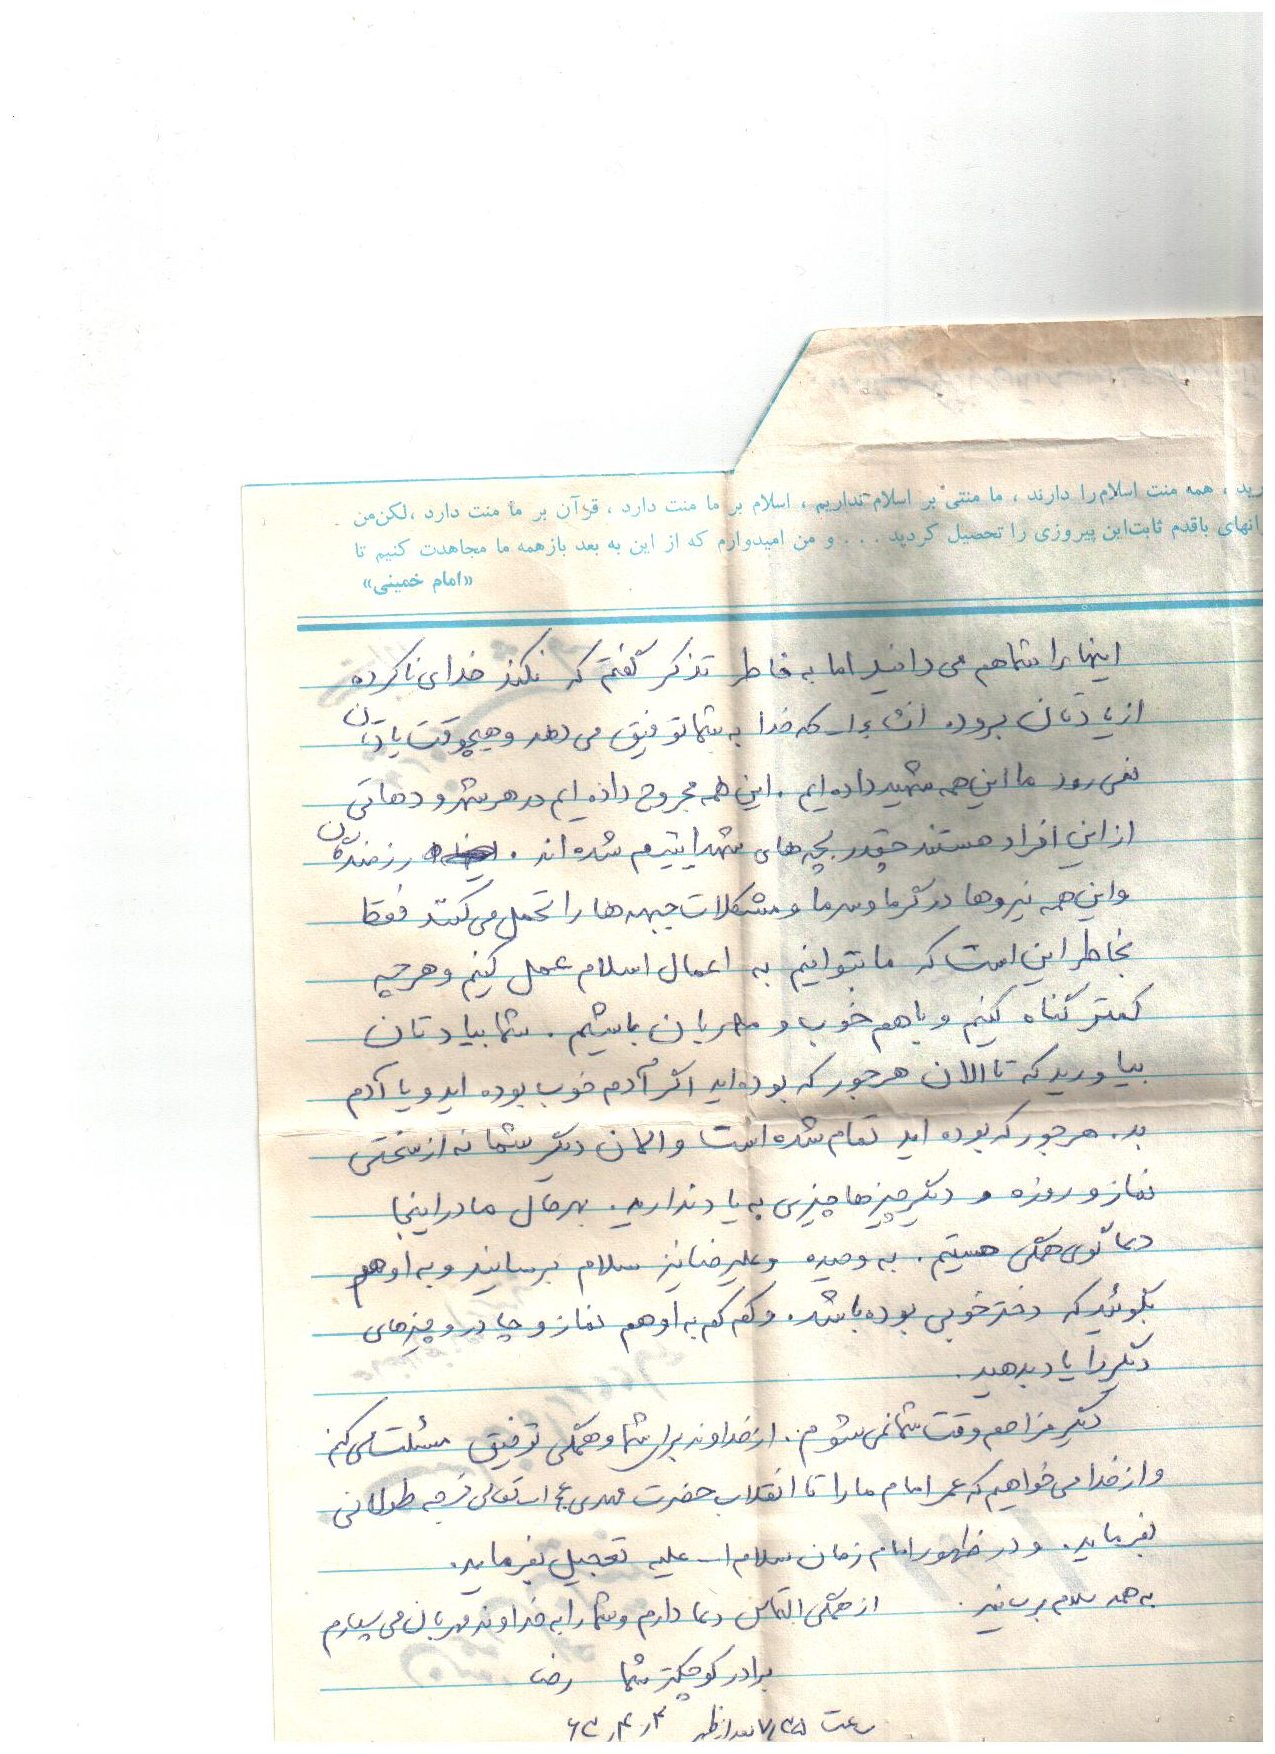 رید ، همه منت اسلام را دارند ، ما منتی بر اسلام نداریم ، اسلام بر ما منت دارد ، قرآن بر ما منت دارد ، لکن من
انهای باقدم ثابت این پیروزی را تحصیل کردید . . . و من امیدوارم که از این به بعد باز همه ما مجاهدت کنیم تا
«امام خمینی»
اینها را شما هم می دانید اما به خاطر تذکر گفتم که نکند خدای ناکرده
از یادتان برود. انشاءا... که خدا به شما توفیق می دهد و هیچوقت یادتان
نمی رود ما این همه شهید داده ایم . این همه مجروح داده ایم در هر شهر و دهاتی
از این افراد هستند چقدر بچه های شهدا یتیم شده اند . رزمندگان
و این همه نیروها در گرما و سرما و مشکلات جبهه ها را تحمل می کنند فقط
بخاطر این است که ما بتوانیم به اعمال اسلام عمل کنیم و هر چه
کمتر گناه کنیم و با هم خوب و مهربان باشیم . شما بیادتان
بیاورید که تا الان هر جور که بوده اید اگر آدم خوب بوده اید و یا آدم
بد. هر جور که بوده اید تمام شده است و الان دیگر شما نه از سختی
نماز و روزه و دیگر چیزها چیزی به یاد ندارید. بهرحال ما در اینجا
دعاگوی همگی هستیم . به وحیده و علیرضا نیز سلام برسانید و به او هم
بگوئید که دختر خوبی بوده باشد. و کم کم به او هم نماز و چادر و چیزهای
دیگر را یاد بدهید.
دیگر مزاحم وقت شما نمی شوم . از خداوند برای شما و همگی توفیق مسئلت می کنم
و از خدا می خواهیم که عمر امام ما را تا انقلاب حضرت مهدی عج ا... تعالی فرجه طولانی
بفرماید. و در ظهور امام زمان سلام ا... علیه تعجیل بفرماید.
به همه سلام برسانید . از همگی التماس دعا دارم و شما را به خداوند مهربان می سپارم
برادر کوچکتر شما رضا
ساعت ۷/۴۵ بعدازظهر ۶۳٫۴٫۴